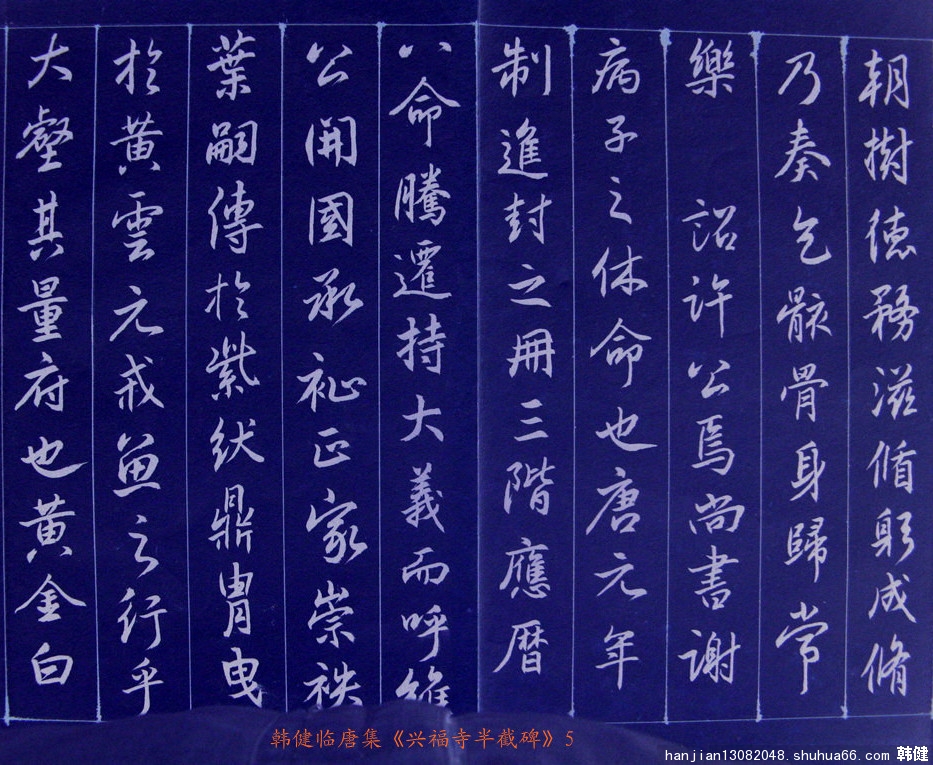 朝樹德務滋脩躬成脩
乃奏乞骸骨身歸常
樂 詔許公焉尚書謝
病子之休命也唐元年
制進封之冊三階應曆
八命騰遷持大義而呼維
公開國承祉正家崇袟
葉嗣傳於紫紱鼎胄曳
於黃雲元戎魚之行乎
大壑其量府也黃金白
韩健临唐集《兴福寺半截碑》5
hanjian13082048.shuhua66.com 韩健